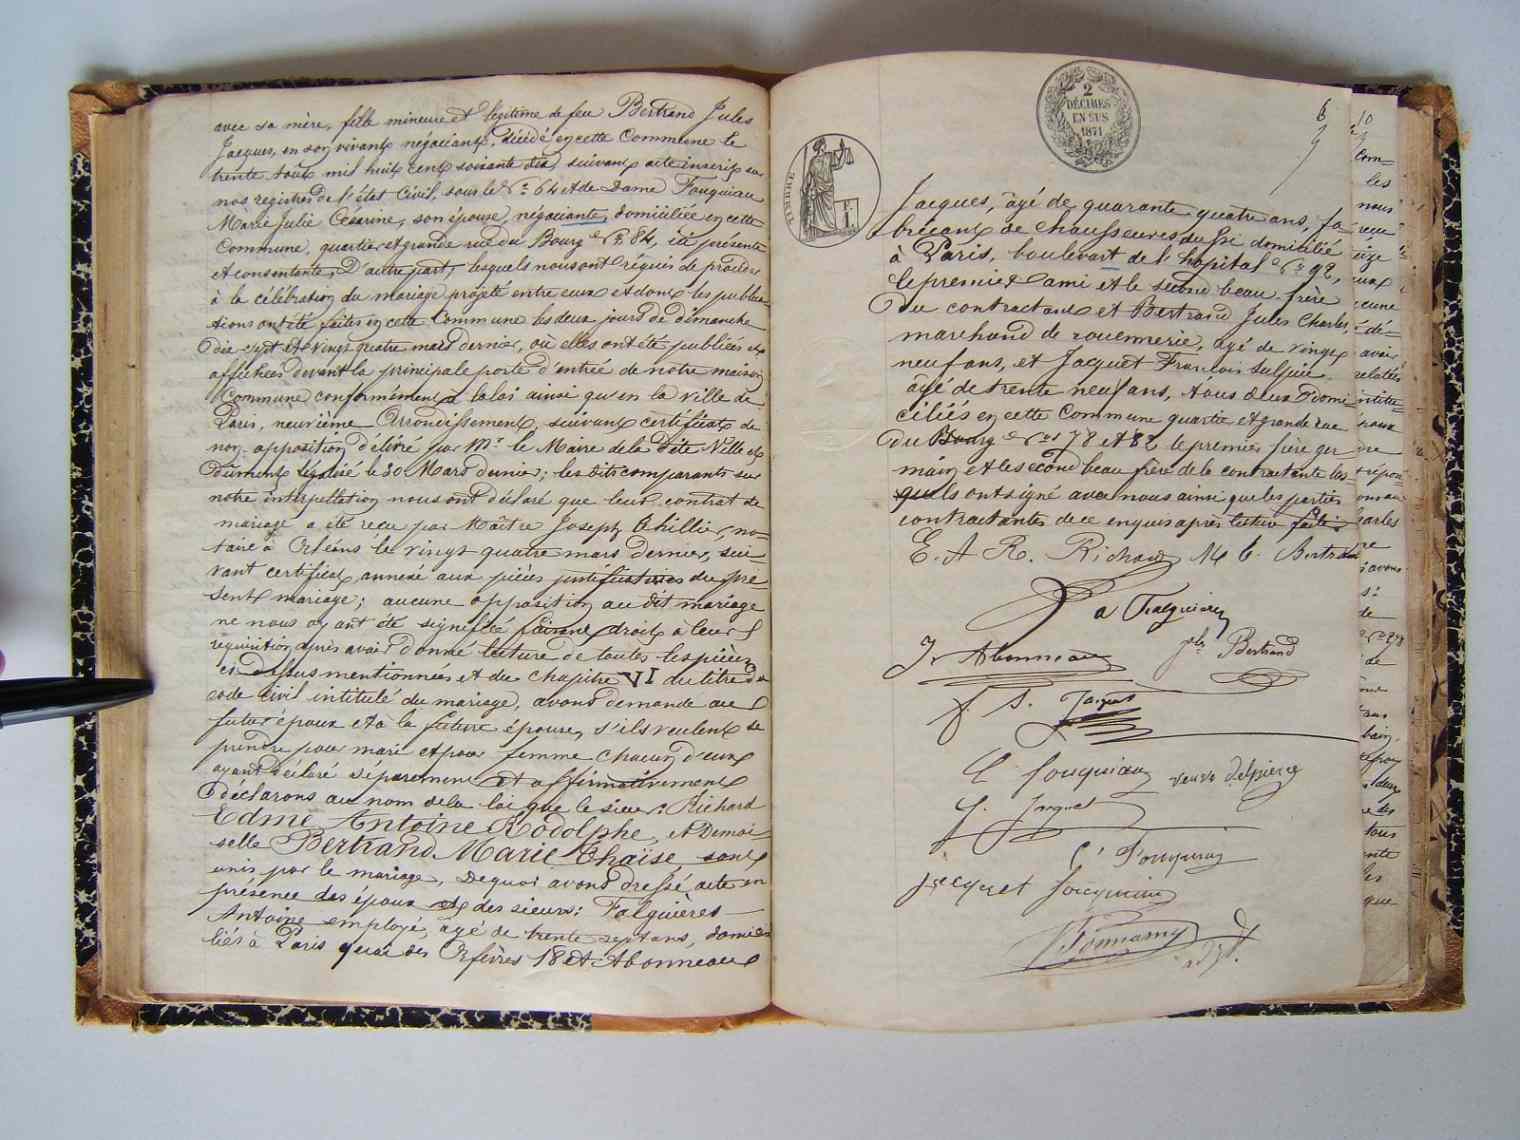 avec sa mère, fille mineure et légitime de feu Bertrand Jules
Jacques, en son vivant négociant, décédé en cette Commune le
trente août mil huit cent soixante dix, suivant acte inscrit sur
nos registres de l'état Civil, sous le No 64 et de Dame Fouquiau
Marie Julie Césarine, son épouse, négociante, domiciliée en cette
Commune, quartier et grande rue du Bourg No 84, ici présente
et consentante, D'autre part, lesquels nous ont réquis de procéder
à la célébration du mariage projeté entre eux et dont les publica-
tions ont été faites en cette Commune les deux jours de dimanche
dix sept et vingt quatre mars dernier, où elles ont été publiées et
affichées devant la principale porte d'entrée de notre maison
Commune conformément à la loi ainsi qu'en la ville de
Paris, neuvième Arrondissement, suivant certificat de
non opposition délivré par Mr le Maire de la dite Ville et
Dûment légalisé le 30 Mars dernier; les dits comparants sur
notre interpellation nous ont déclaré que leur contrat de
mariage a été reçu par Maître Joseph Thillier, no-
taire à Orléans le vingt quatre mars dernier, sui-
vant certificat annexé aux pièces justificatives du pré-
sent mariage; aucune opposition au dit mariage
ne nous ayant été signifiée faisant droit à leur
requisition après avoir donné lecture de toutes les pièces
ci-dessus mentionnées et du chapitre VI du titre du
code Civil intitulé du mariage, avons demandé au
futur époux et à la future épouse, s'ils veulent se
prendre pour mari et pour femme chacun d'eux
ayant déclaré séparément et affirmativement
déclarons au nom de la loi que le sieur Richard
Edme Antoine Rodolphe, et Demoi-
selle Bertrand Marie Thaïse sont
unis par le mariage, De quoi avons dressé acte en
présence des époux et des sieurs: Falguières
Antoine employé, âgé de trente sept ans, domici-
liés à Paris quai des Orfèvres 18 et Abonneau
TIMBRE
2
DÉCIMES
EN SUS
1871
6
Jacques, âgé de quarante quatre ans, fa-
bricant de chaussures du Sri domicilié
à Paris, boulevart de l'hopital No 92,
le premier ami et le second beau frère
du contractant et Bertrand Jules Charles,
marchand de rouennerie, âgé de vingt
neuf ans, et Jacquet François Sulpice
âgé de trente neuf ans, tous deux domi-
ciliés en cette Commune quartier et grande rue
du Bourg Nos 78 et 82 le premier frère ger
main et le second beau frère de la contractante les-
quels ont signé avec nous ainsi que les parties
contractantes de ce enquis après lecture faite
E. A R. Richard M t. Bertrand
a Falguières
J. Abonneau
Jles Bertrand
f. S. Jacquet
C fouquiau veuve Delpierre
J. Jacquet
C. Fouquiau
jacquet fouquiau
10
Com-
les
nous